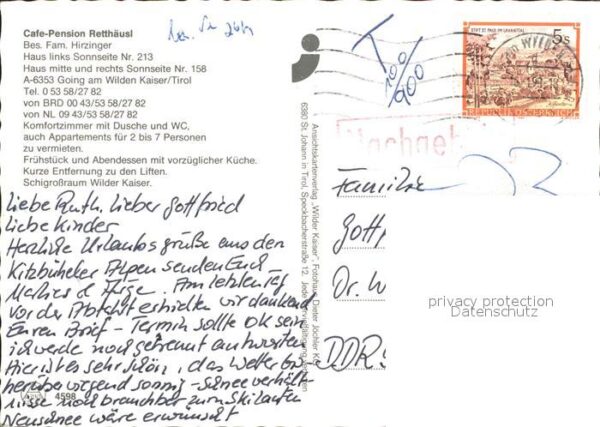 Cafe-Pension Retthäusl
Bes. Fam. Hirzinger
Haus links Sonnseite Nr. 213
Haus mitte und rechts Sonnseite Nr. 158
A-6353 Going am Wilden Kaiser/Tirol
Tel. 0 53 58/27 82
von BRD 00 43/53 58/27 82
von NL 09 43/53 58/27 82
Komfortzimmer mit Dusche und WC,
auch Appartements für 2 bis 7 Personen
zu vermieten.
Frühstück und Abendessen mit vorzüglicher Küche.
Kurze Entfernung zu den Liften.
Schigroßraum Wilder Kaiser.
Liebe Ruth, Lieber Gottfried
Liebe Kinder
Herzliche Urlaubsgrüße aus den
Kitzbüheler Alpen senden Euch
Am letzten Tag
vor der Abfahrt erhielten wir dankend
Euren Brief - Termin sollte ok sein
ich werde noch getrennt antworten
Hier ist es sehr schön, das Wetter bis
herüberwiegend sonnig - Schneeverhält-
nisse noch brauchbar zum Skilaufen
Neuschnee wäre erwünscht
4598
Ansichtskartenverlag „Wilder Kaiser", Fotohaus Dieter Jöchler KG
6380 St. Johann in Tirol, Speckbacherstraße 12, Jede Vervielfältigung verboten
T 100/900
STIFT ST. PAUL IM LAVANTTAL
5 S
REPUBLIK ÖSTERREICH
Nachgeb
Familie
Gottf
Dr. W
DDR
privacy protection
Datenschutz